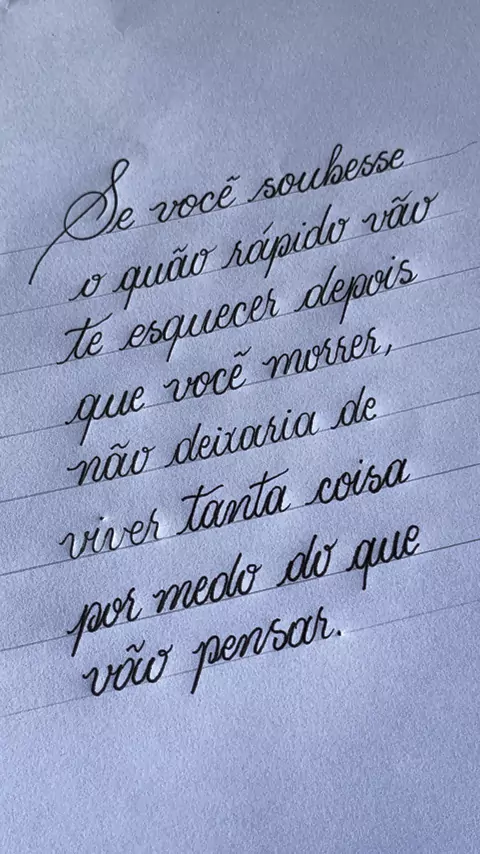 Se você soubesse
o quão rápido vão
te esquecer depois
que você morrer,
não deixaria de
viver tanta coisa
por medo do que
vão pensar.